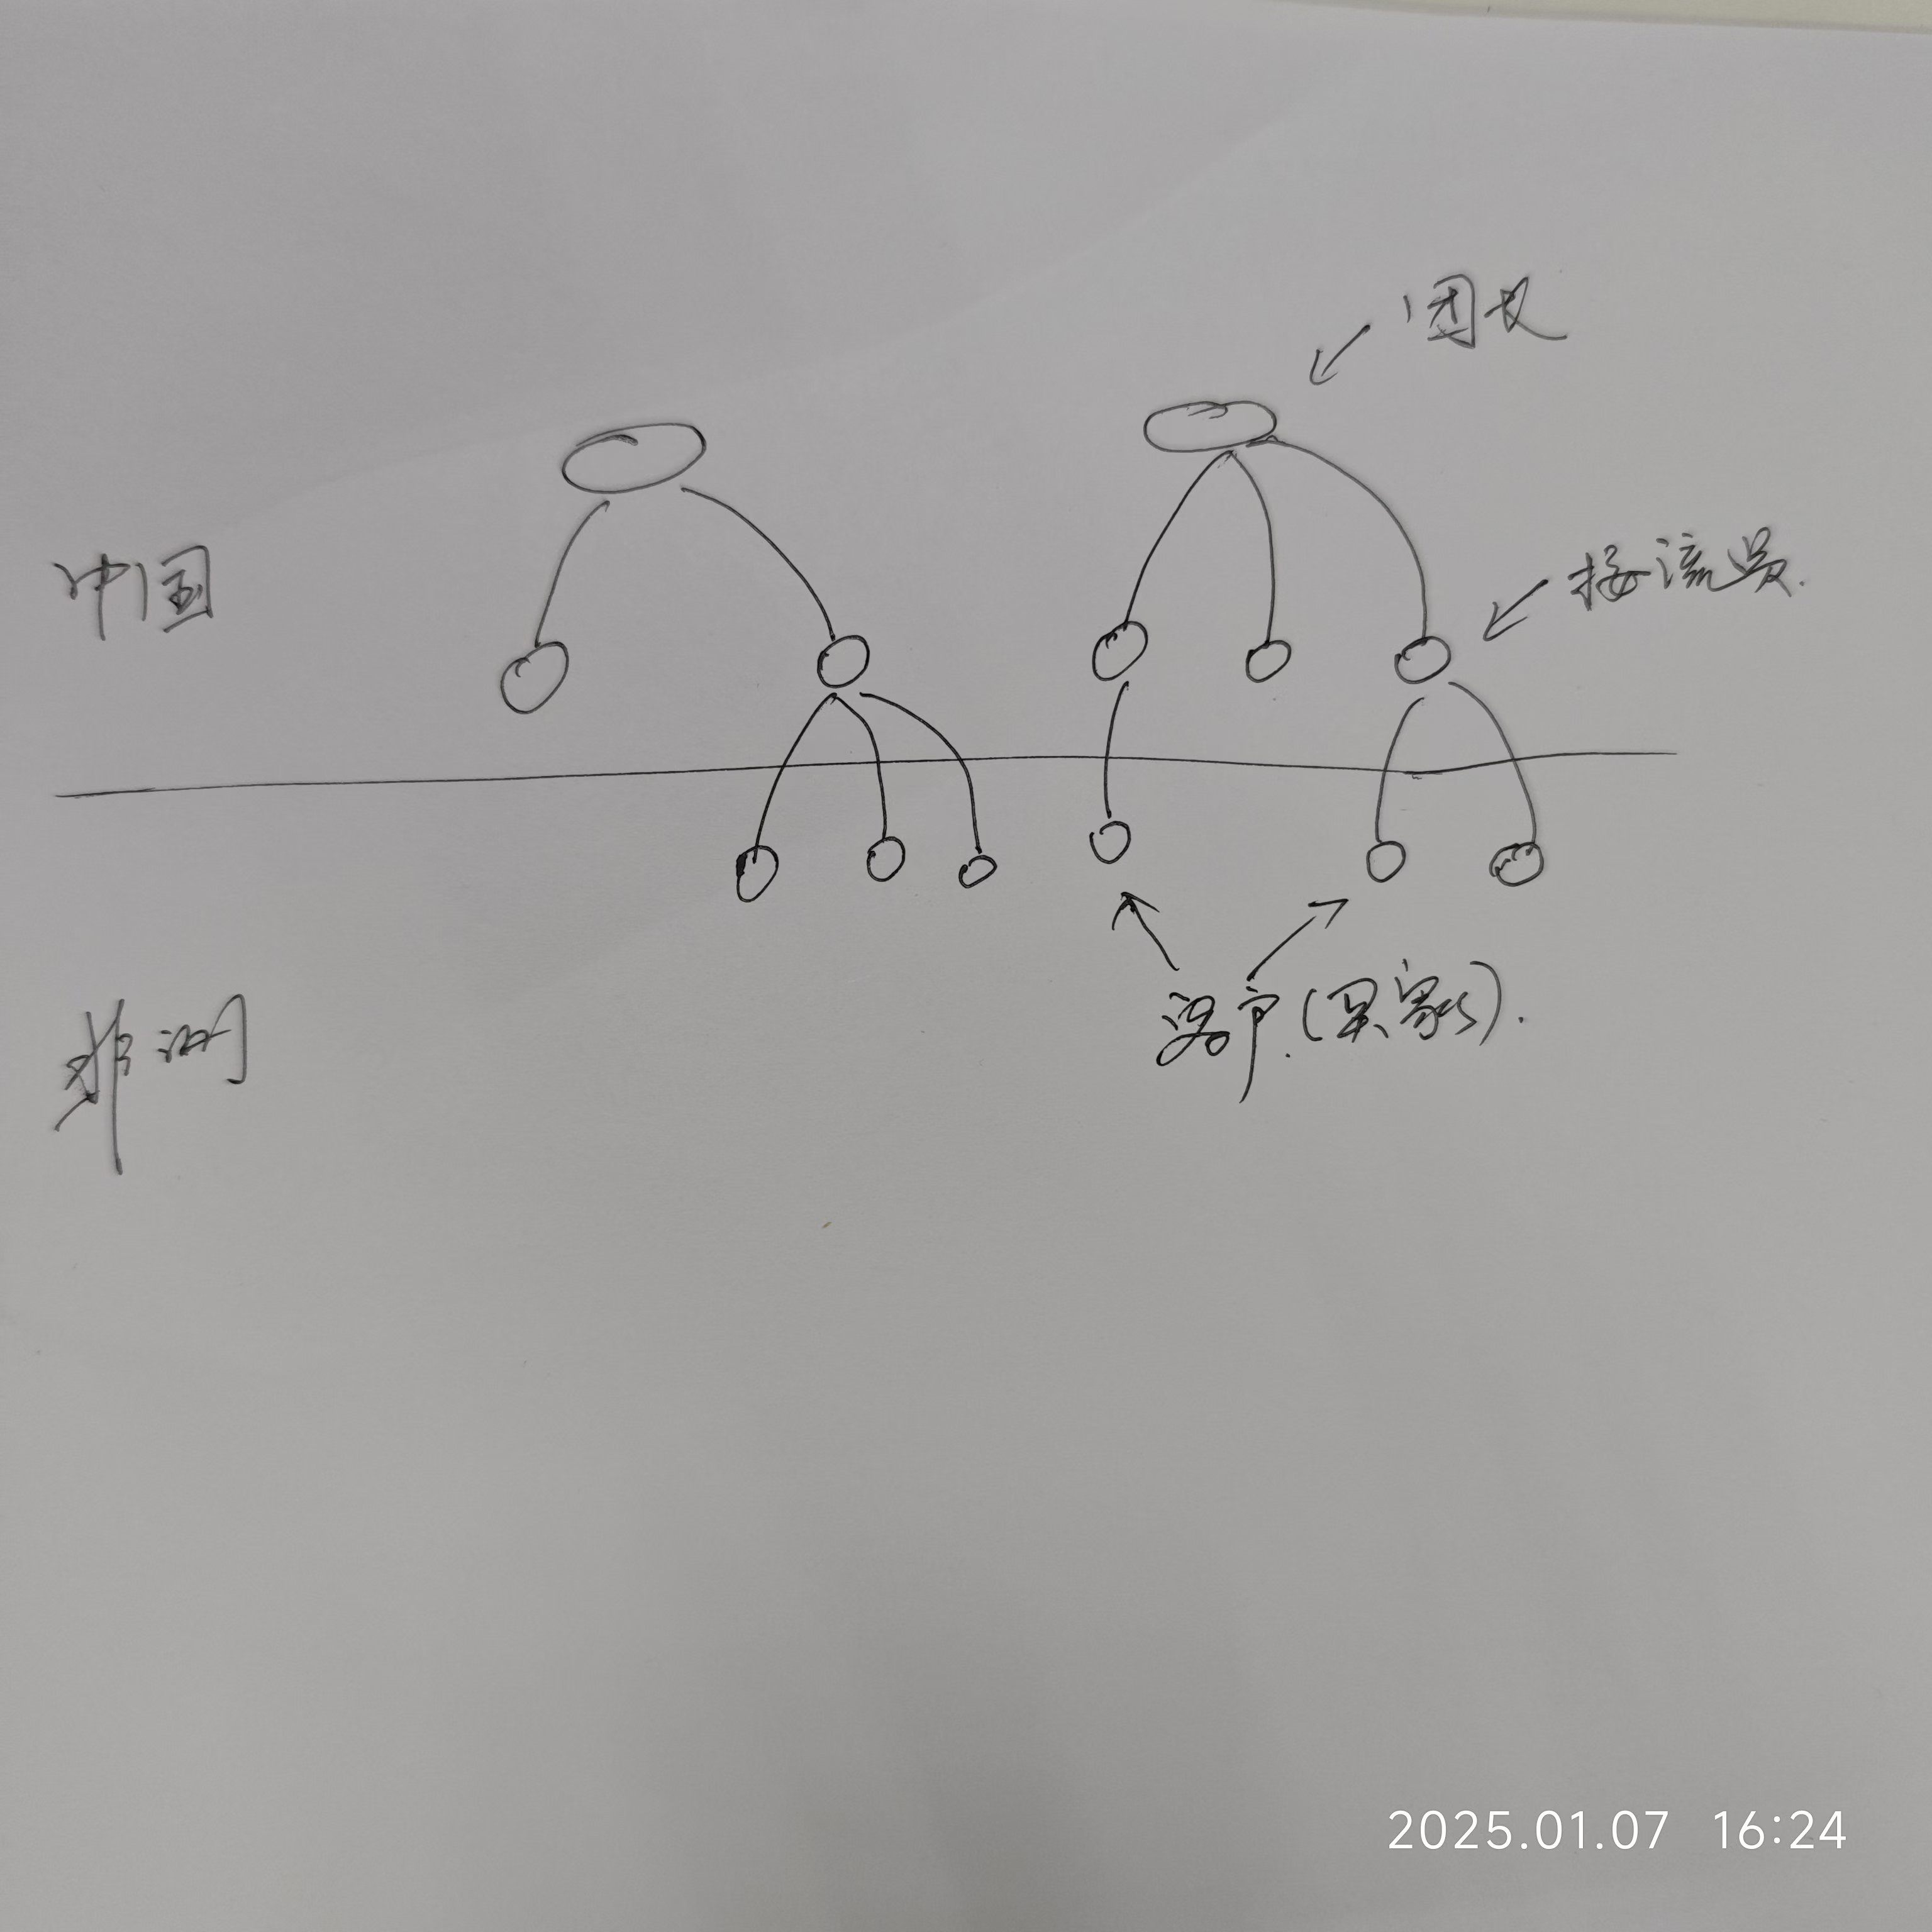 团长
中国
接流员.
非洲
客户.(买家).
2025.01.07 16:24